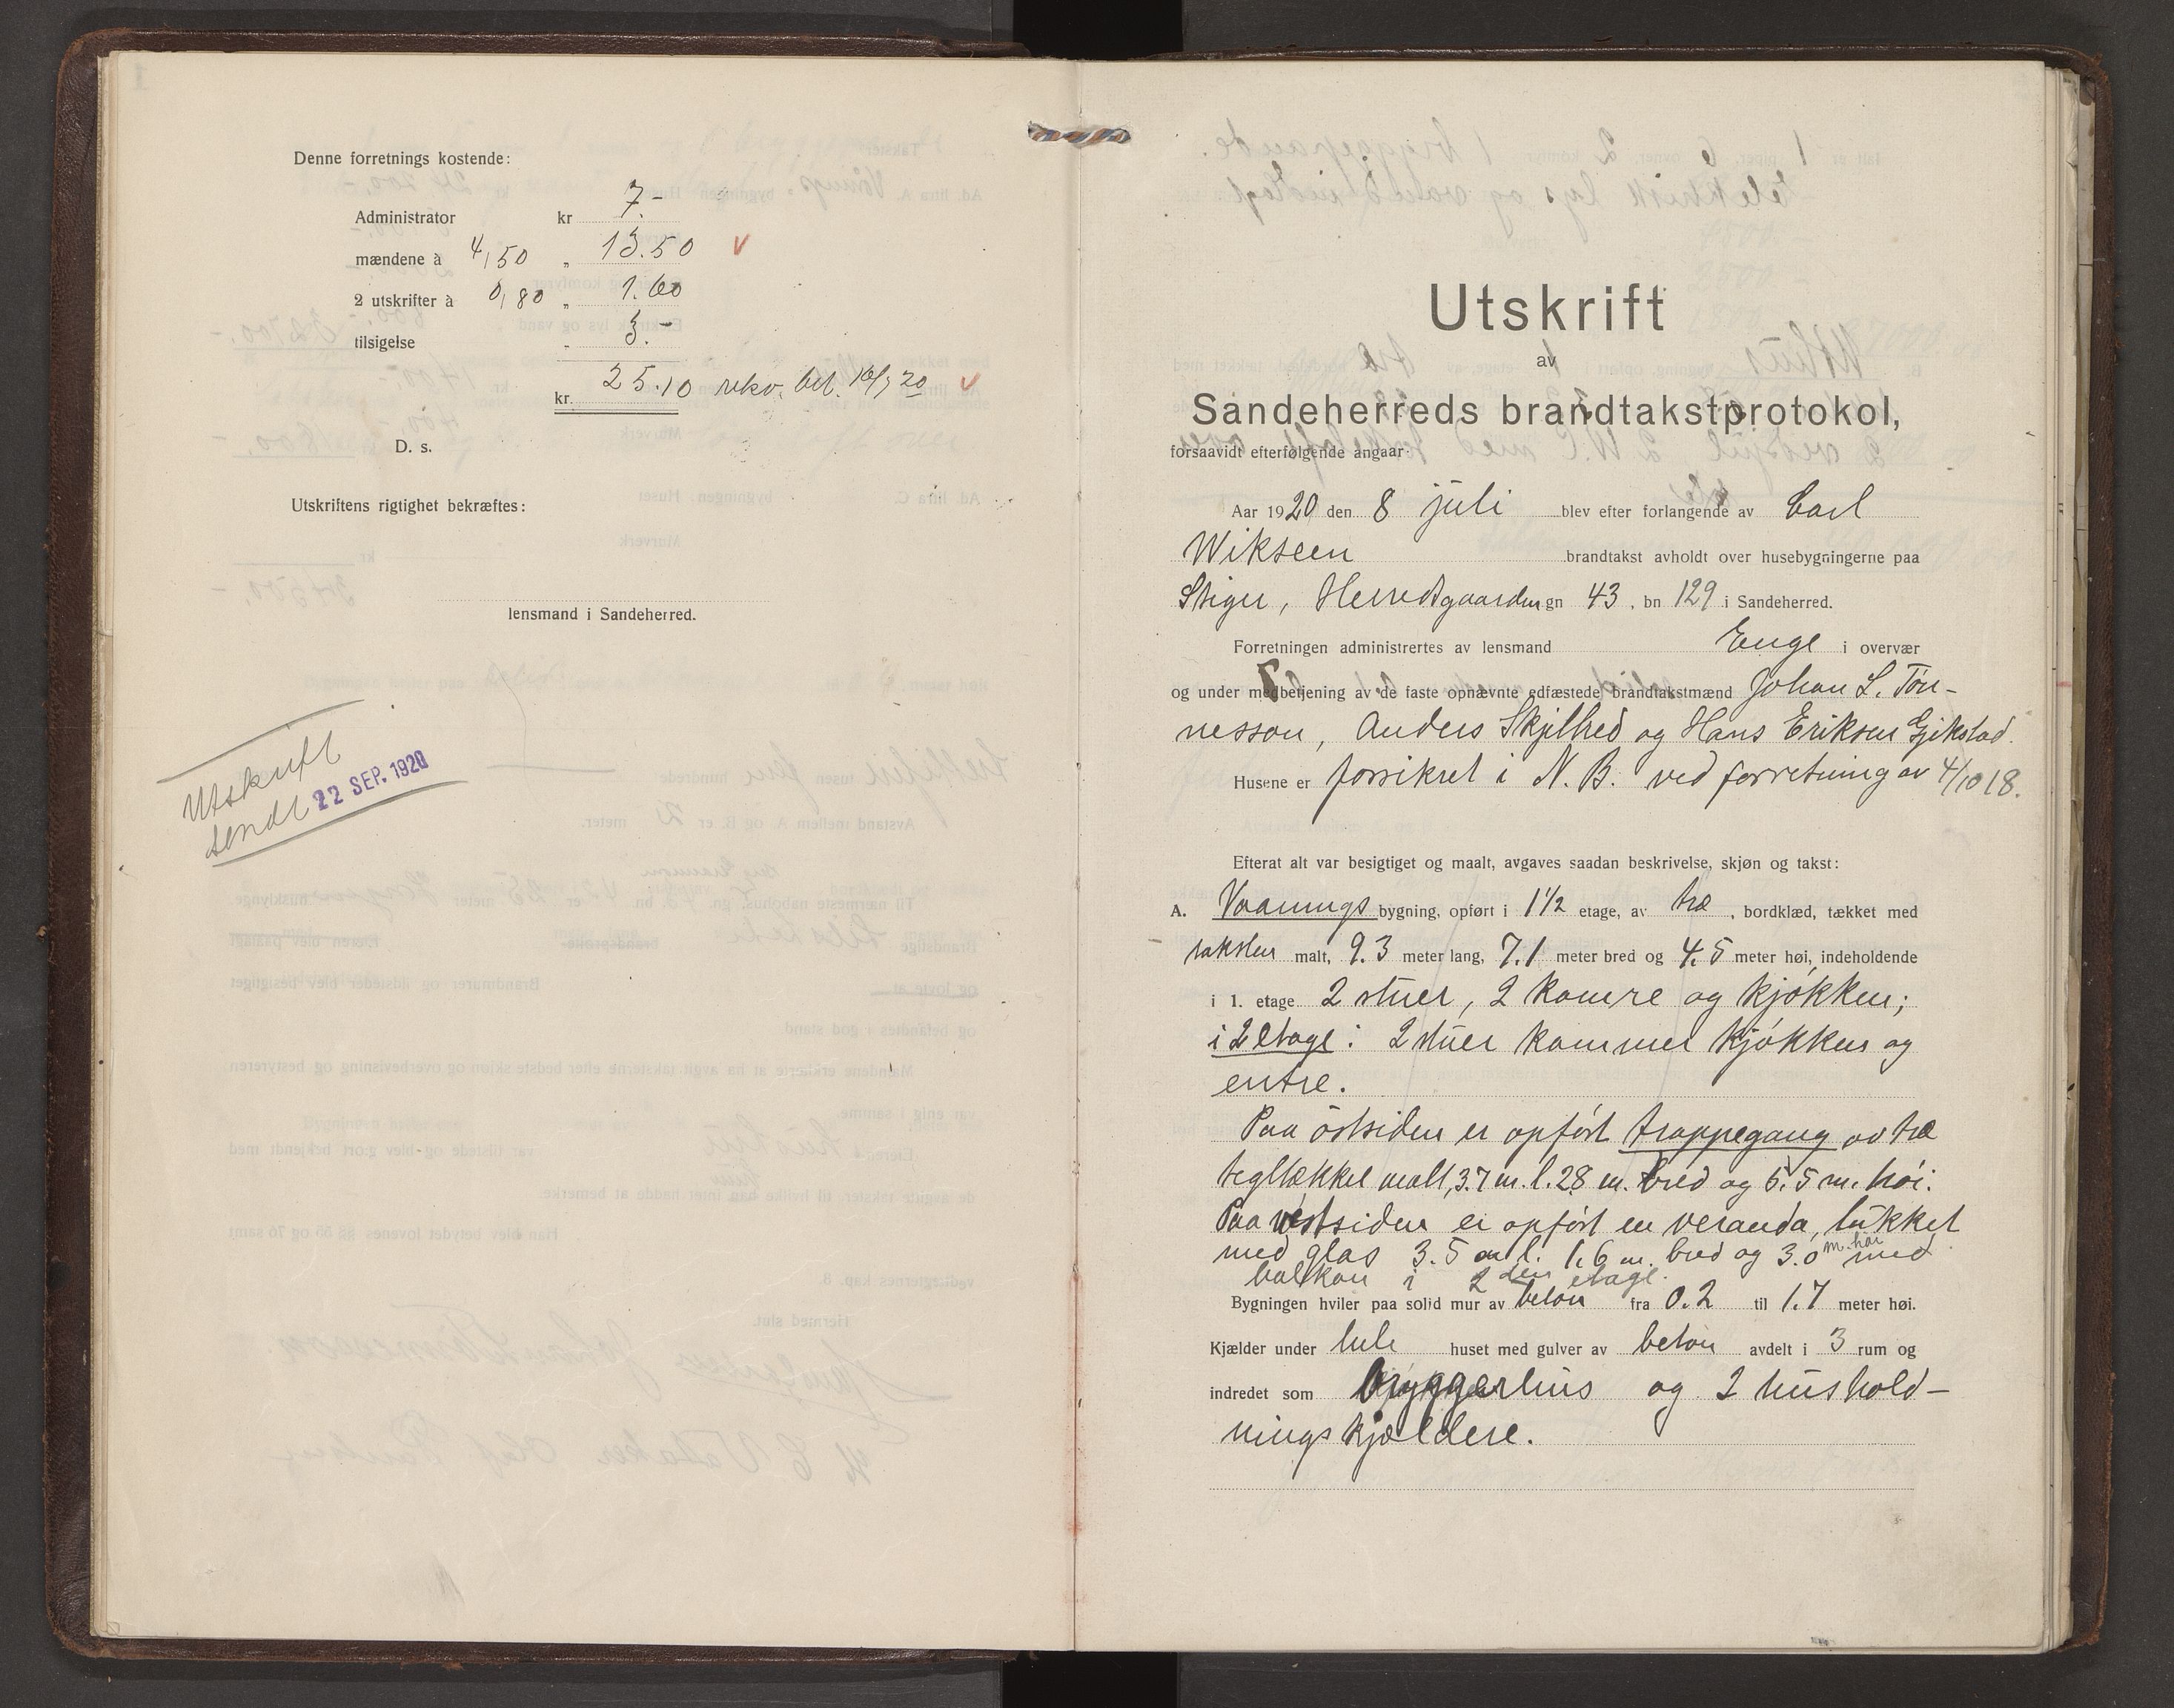 Denne forretnings kostende:
Administrator kr 7.-
mændene à 4,50 „ 13.50 v
2 utskrifter à 0,80 „ 1.60
tilsigelse „ 3.-
kr. 25.10 rekv. bet. 16/7 20 v
D. s.
Utskriftens rigtighet bekræftes:
lensmand i Sandeherred.
Utskrift
sendt 22 SEP. 1920
Utskrift
av
Sandeherreds brandtakstprotokol,
forsaavidt efterfølgende angaar:
Aar 1920 den 8 juli blev efter forlangende av Carl
Wikseen brandtakst avholdt over husebygningerne paa
Herredsgaarden gn 43, bn 129 i Sandeherred.
Forretningen administrertes av lensmand Enge i overvær
og under medbetjening av de faste opnævnte edfæstede brandtakstmænd Johan L. Tøn-
nesson, Anders Skjelbred og Hans Eriksen Gjekstad.
Husene er forsikret i N. B. ved forretning av 4/10 18.
Efterat alt var besigtiget og maalt, avgaves saadan beskrivelse, skjøn og takst:
A. Vaanings bygning, opført i 1½ etage, av træ, bordklæd, tækket med
taksten malt, 9.3 meter lang, 7.1 meter bred og 4.5 meter høi, indeholdende
i 1. etage 2 stuer, 2 kamre og kjøkken;
i 2 etage: 2 stuer kammer kjøkken og
entre.
Paa østsiden er opført trappegang av træ
tegltækket malt, 3.7 m. l. 2.8 m. bred og 5.5 m. høi.
Paa vestsiden er opført en veranda, lukket
med glas 3.5 m l. 1.6 m. bred og 3.0 m. høi med
balkon i 2 den etage.
Bygningen hviler paa solid mur av beton fra 0.2 til 1.7 meter høi.
Kjælder under hele huset med gulver av beton avdelt i 3 rum og
indredet som bryggerhus og 2 hushold-
ningskjældere.